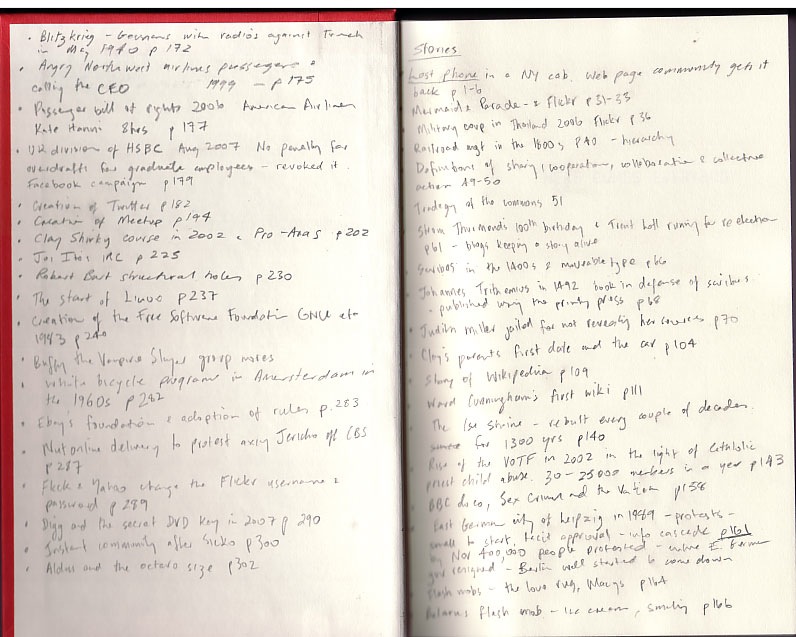 • Blitzkrieg - Germans with radios against French
in May 1940 p 172
• Angry Northwest airlines passengers &
calling the CEO 1999 - p 175
• Passenger bill of rights 2006 American Airlines
Kate Hanni 8hrs p 177
• UK division of HSBC Aug 2007 No penalty for
overdrafts for graduate employees - revoked it.
Facebook campaign p179
• Creation of Twitter p182
• Creation of Meetup p194
• Clay Shirky course in 2002 & Pro-Anas p202
• Joi Ito's IRC p 225
• Robert Burt structural holes p 230
• The start of Linux p237
• Creation of the Free Software Foundation GNU etc
1983 p 240
• Buffy the Vampire Slayer group moves
• White bicycle programs in Amersterdam in
the 1960s p 282
• Ebay's foundation & adoption of rules p.283
• Nut online delivery to protest axing Jericho off CBS
p 287
• Flickr & Yahoo change the Flickr username &
password p 289
• Digg and the secret DVD key in 2007 p 290
• Instant community after Sicko p300
• Aldus and the octavo size p302
Stories
Lost phone in a NY cab. Web page community gets it
back p 1-6
Mermaid Parade - & Flickr p31-33
Military coup in Thailand 2006 Flickr p 36
Railroad mgt in the 1800s p40 - hierarchy
Definitions of sharing, cooperation, collaboration & collective
action 49-50
Tradegy of the commons 51
Strom Thurmonds 100th birthday & Trent Lott running for re election
p61 - blogs keeping a story alive
Scribes in the 1400s & moveable type p66
Johannes Trithemius in 1492 book in defense of scribes
- published using the printing press p68
Judith Miller jailed for not revealing her sources p70
Clay's parents first date and the car p104
Story of Wikipedia p109
Ward Cunningham's first wiki p111
The Ise Shrine - rebuilt every couple of decades
for 1300 yrs p140
Rise of the VOTF in 2002 in the light of Catholic
priest child abuse. 30-25000 members in a year p143
BBC doco, Sex Crimes and the Vatican p158
East German city of Leipzig in 1989 - protests -
small to start, tacit approval - info cascade p161
by Nov 400,000 people protested - entire E. German
gov resigned - Berlin wall started to come down
Flash mobs - the love rug, Macys p164
Belarus flash mob - ice cream, smiling p166